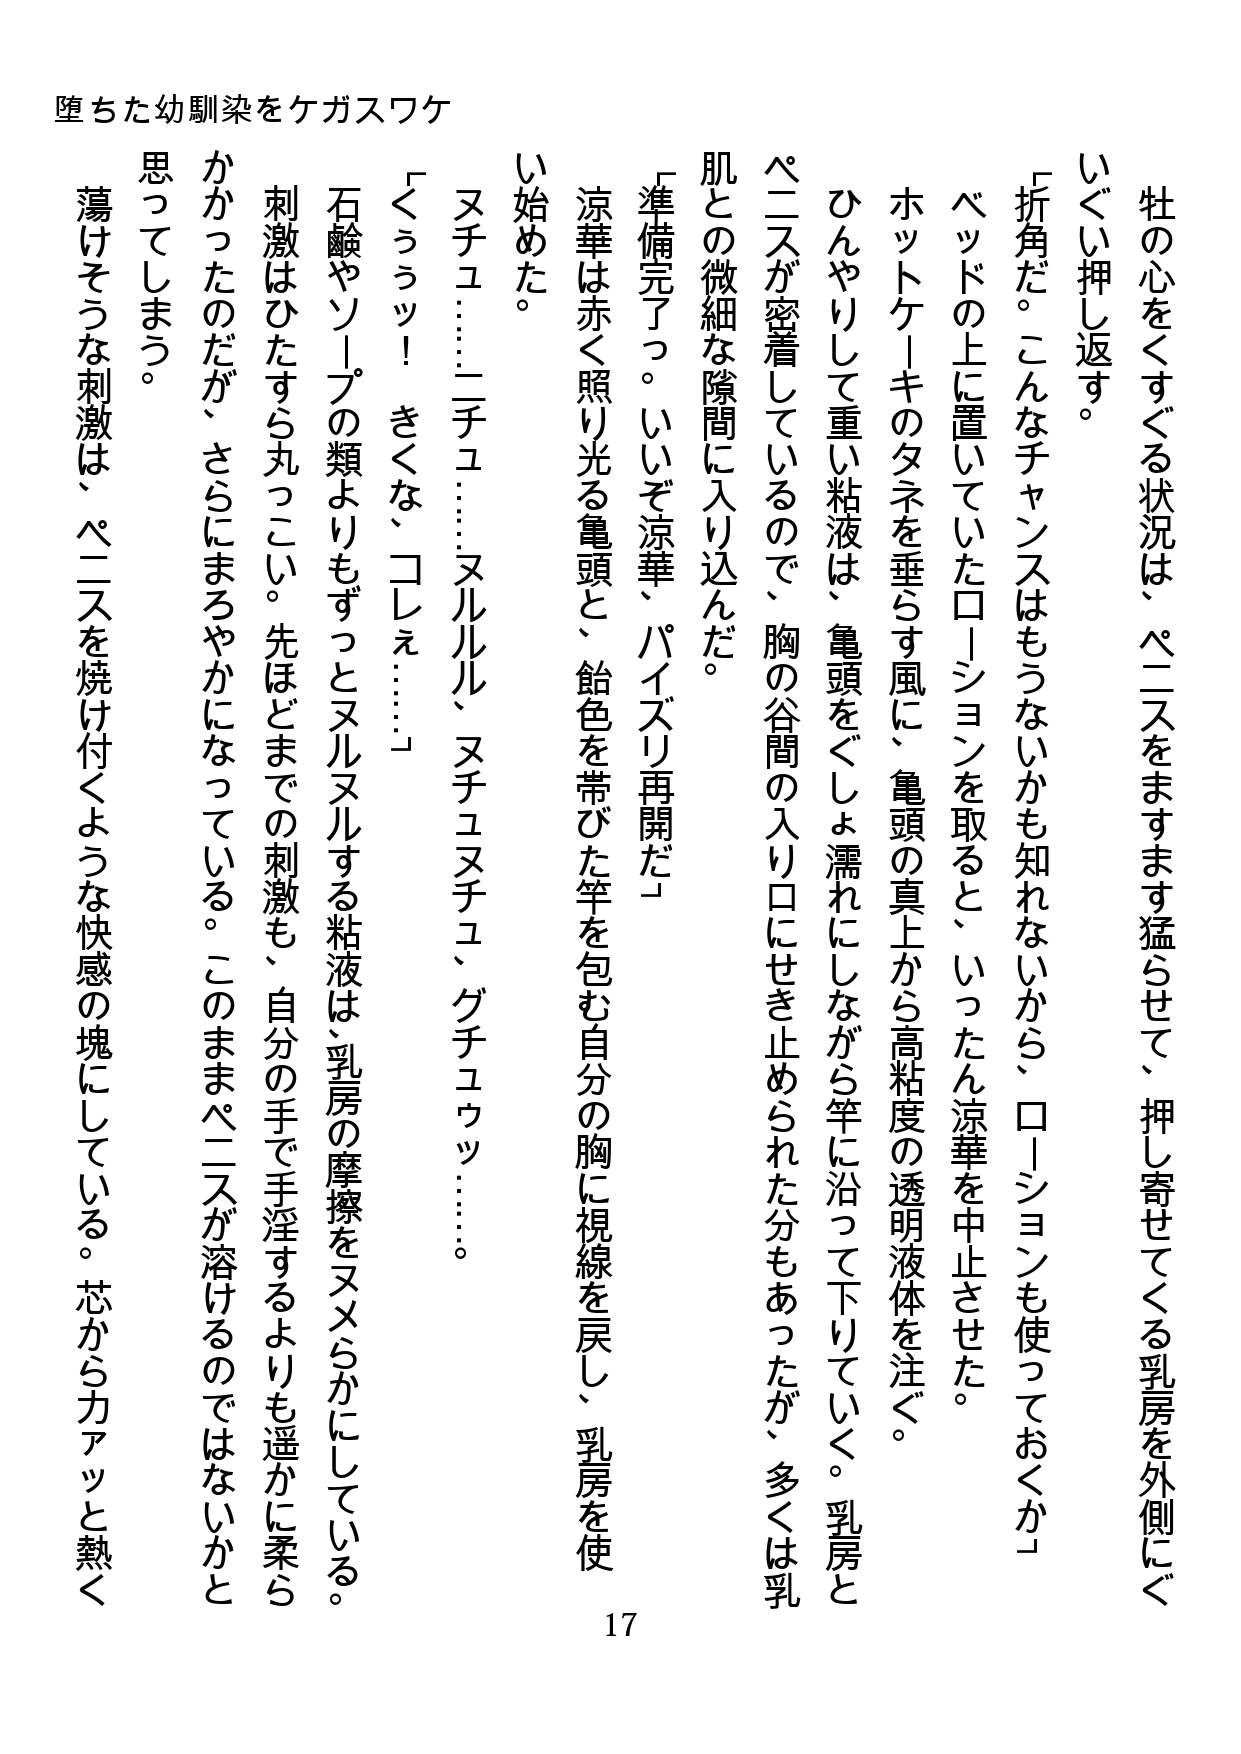 堕ちた幼馴染をケガスワケ
牡の心をくすぐる状況は、ペニスをますます猛らせて、押し寄せてくる乳房を外側にぐ
いぐい押し返す。
「折角だ。こんなチャンスはもうないかも知れないから、ローションも使っておくか」
ベッドの上に置いていたローションを取ると、いったん涼華を中止させた。
ホットケーキのタネを垂らす風に、亀頭の真上から高粘度の透明液体を注ぐ。
ひんやりして重い粘液は、亀頭をぐしょ濡れにしながら竿に沿って下りていく。乳房と
ペニスが密着しているので、胸の谷間の入り口にせき止められた分もあったが、多くは乳
肌との微細な隙間に入り込んだ。
「準備完了っ。いいぞ涼華、パイズリ再開だ」
涼華は赤く照り光る亀頭と、飴色を帯びた竿を包む自分の胸に視線を戻し、乳房を使
い始めた。
ヌチュ……ニチュ……ヌルルル、ヌチュヌチュ、グチュゥッ……。
「くぅぅッ！　きくな、コレぇ……」
石鹸やソープの類よりもずっとヌルヌルする粘液は、乳房の摩擦をヌメらかにしている。
刺激はひたすら丸っこい。先ほどまでの刺激も、自分の手で手淫するよりも遥かに柔ら
かかったのだが、さらにまろやかになっている。このままペニスが溶けるのではないかと
思ってしまう。
蕩けそうな刺激は、ペニスを焼け付くような快感の塊にしている。芯からカァッと熱く
17